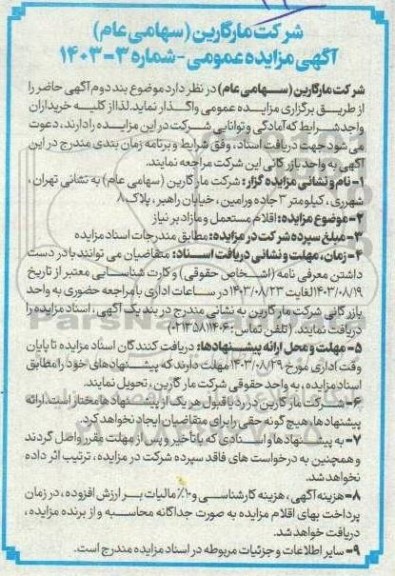 شرکت مارگارین (سهامی عام)
آگهی مزایده عمومی - شماره ۳-۱۴۰۳
شرکت مارگارین (سهامی عام) در نظر دارد موضوع بند دوم آگهی حاضر را
از طریق برگزاری مزایده عمومی واگذار نماید. لذا از کلیه خریداران
واجد شرایط که آمادگی و توانایی شرکت در این مزایده را دارند، دعوت
می شود جهت دریافت اسناد، وفق شرایط و برنامه زمان بندی مندرج در این
آگهی به واحد بازرگانی این شرکت مراجعه نمایند.
۱- نام و نشانی مزایده گزار: شرکت مارگارین (سهامی عام) به نشانی تهران،
شهرری، کیلومتر ۳ جاده ورامین، خیابان راهبر، پلاک ۸
۲- موضوع مزایده: اقلام مستعمل و مازاد بر نیاز
۳- مبلغ سپرده شرکت در مزایده: مطابق مندرجات اسناد مزایده
۴- زمان، مهلت و نشانی دریافت اسناد: متقاضیان می توانند با در دست
داشتن معرفی نامه (اشخاص حقوقی) و کارت شناسایی معتبر از تاریخ
۱۴۰۳/۰۸/۱۹ لغایت ۱۴۰۳/۰۸/۲۳ در ساعات اداری با مراجعه حضوری به واحد
بازرگانی شرکت مارگارین به نشانی مندرج در بند یک آگهی، اسناد مزایده را
دریافت نمایند. (تلفن تماس: ۰۲۱۳۵۸۱۱۴۰۴)
۵- مهلت و محل ارائه پیشنهادها: دریافت کنندگان اسناد مزایده تا پایان
وقت اداری مورخ ۱۴۰۳/۰۸/۲۹ مهلت دارند که پیشنهادهای خود را مطابق
اسناد مزایده، به واحد حقوقی شرکت مارگارین، تحویل نمایند.
۶- شرکت مارگارین در رد یا قبول هر یک از پیشنهادها مختار است. ارائه
پیشنهادها، هیچ گونه حقی را برای متقاضیان ایجاد نخواهد کرد.
۷- به پیشنهادها و اسنادی که با تأخیر و پس از مهلت مقرر واصل گردند
و همچنین به درخواست های فاقد سپرده شرکت در مزایده، ترتیب اثر داده
نخواهد شد.
۸- هزینه آگهی، هزینه کارشناسی و ۱۰٪ مالیات بر ارزش افزوده، در زمان
پرداخت بهای اقلام مزایده به صورت جداگانه محاسبه و از برنده مزایده،
دریافت خواهد شد.
۹- سایر اطلاعات و جزئیات مربوطه در اسناد مزایده مندرج است.